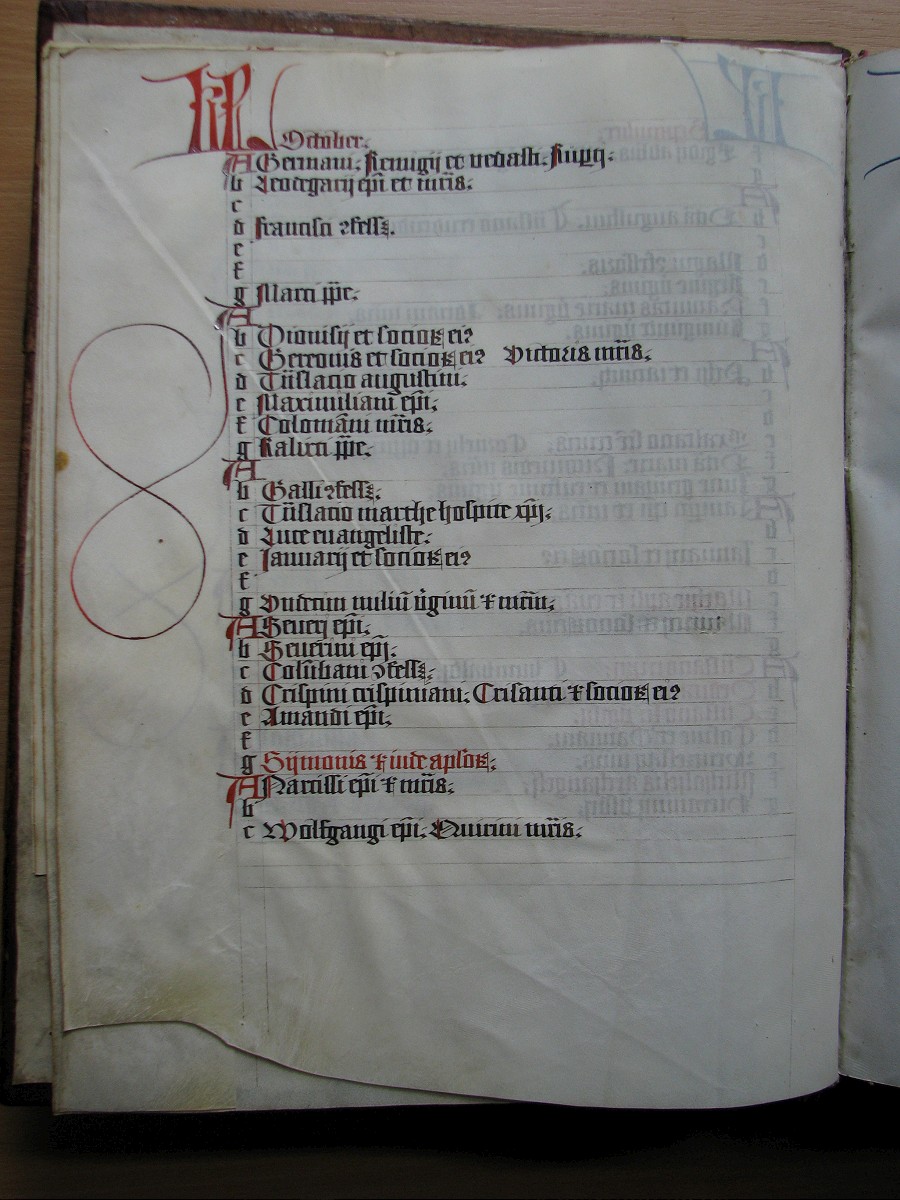 KL October.
A Germani. Remigij et vedasti. 
b Leodegarij ep̄i et mr̄is.
c
d francisci ꝯfessꝫ.
e
f
g Marci pp̄e.
A
b Dionisij et socioꝝ eiꝰ
c Gereonis et socioꝝ eiꝰ Victoris mr̄is.
d Tn̄slatio augustini.
e Maximiliani ep̄i.
f Colomāni mr̄is.
g Kalixti pp̄e.
A
b Galli ꝯfessꝫ.
c Tn̄slatio marthe hospite xp̄i.
d Luce euangeliste.
e Januarij et socioꝝ eiꝰ
f
g Vndecim miliū v̓ginū ⁊ mr̄m.
A Seueri ep̄i.
b Seuerini ep̄i.
c Colūbani ꝯfessꝫ.
d Crispini crispiniani. Crisanti ⁊ socioꝝ eiꝰ
e Amandi ep̄i.
f
g Sijmonis ⁊ iude aplōꝝ.
A Narcissi ep̄i ⁊ mr̄is.
b
c Wolfgangi ep̄i. Quirini mr̄is.